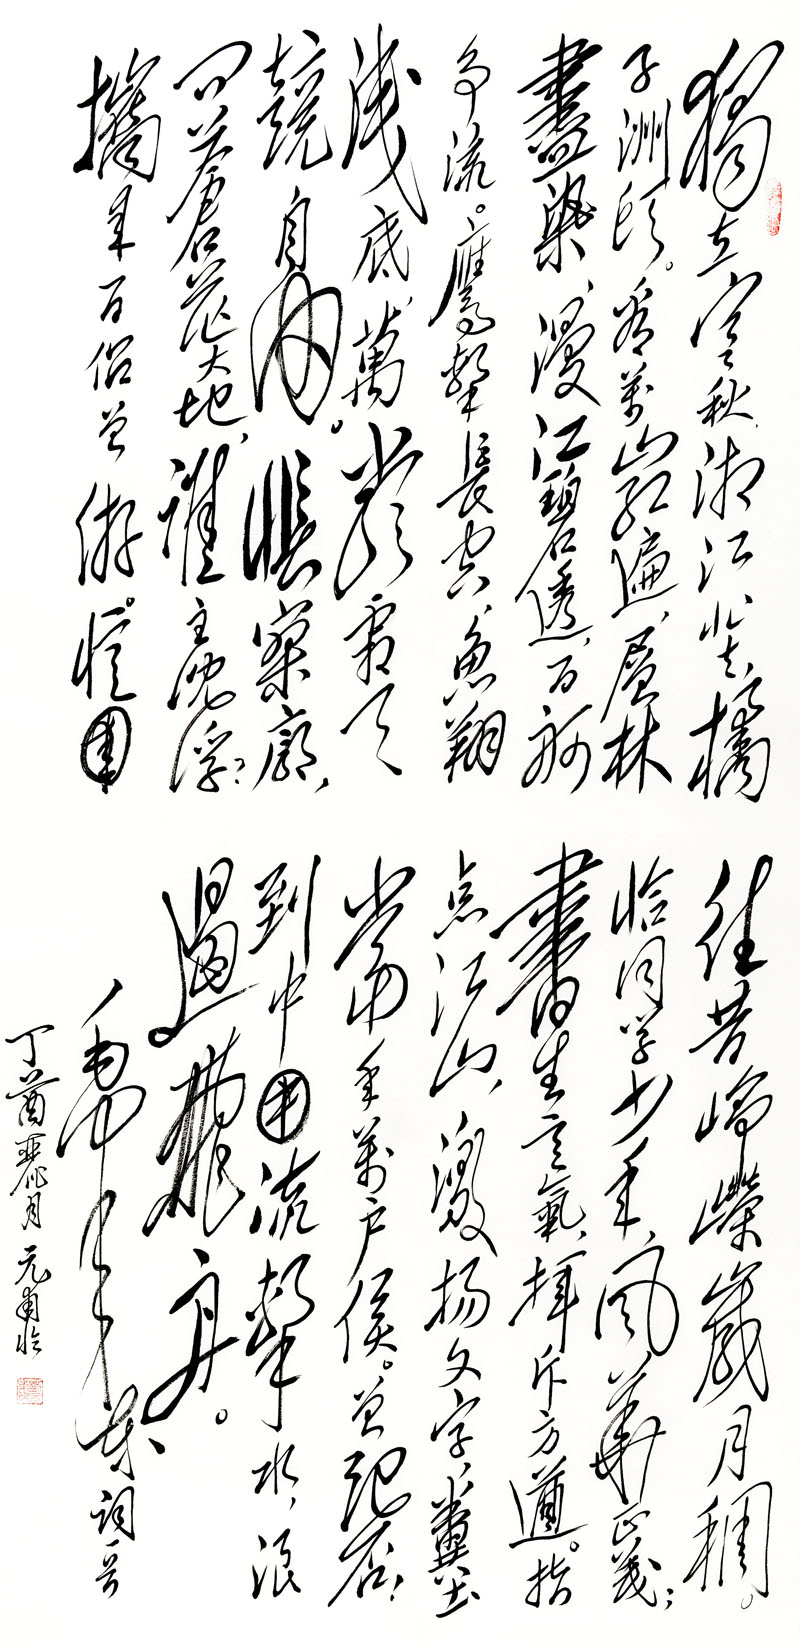 獨立寒秋,湘江北去,橘
子洲頭。看萬山紅遍,層林
盡染,漫江碧透,百舸
争流。鷹擊長空,魚翔
淺底,萬類霜天
競自由。悵寥廓,
問蒼茫大地,誰主沉浮?
攜來百侣曾遊。憶
往昔崢嶸歲月稠。
恰同學少年,風華正茂;
書生意氣,揮斥方遒。指
点江山,激扬文字,糞土
當年萬户侯。曾記否?
到中流擊水,浪
遏飛舟。
毛 詞一首
丁酉 月 元甫臨